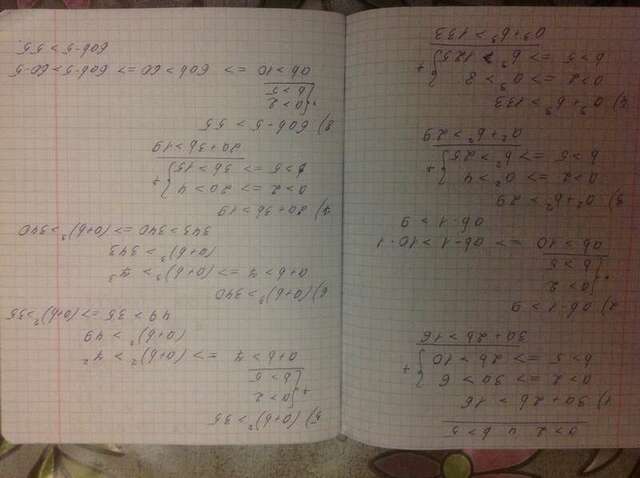 a > 2 и b > 5
1) 3a + 2b > 16
a > 2 => 3a > 6
b > 5 => 2b > 10
3a + 2b > 16
2) ab - 1 > 9
a > 2
b > 5
ab > 10 => ab - 1 > 10 - 1
ab - 1 > 9
3) a² + b² > 29
a > 2 => a² > 4
b > 5 => b² > 25
a² + b² > 29
4) a³ + b³ > 133
a > 2 => a³ > 8
b > 5 => b³ > 125
a³ + b³ > 133
5) (a+b)² > 35
a > 2
b > 5
a + b > 7 => (a+b)² > 7²
(a+b)² > 49
49 > 35 => (a+b)² > 35
6) (a+b)³ > 340
a + b > 7 => (a+b)³ > 7³
(a+b)³ > 343
343 > 340 => (a+b)³ > 340
7) 2a + 3b > 19
a > 2 => 2a > 4
b > 5 => 3b > 15
2a + 3b > 19
8) 6ab - 5 > 55
a > 2
b > 5
ab > 10 => 6ab > 60 => 6ab - 5 > 60 - 5
6ab - 5 > 55